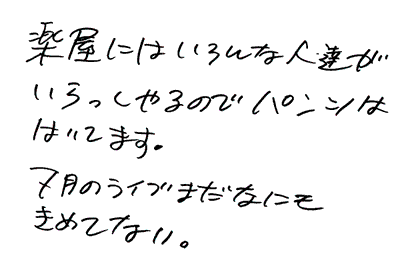 楽屋にはいろんな人達が
いらっしゃるのでパンツは
はいてます。
7月のライブまだなにも
きめてない。